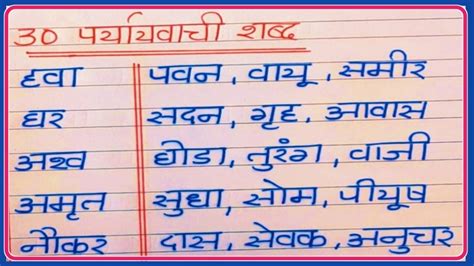 30 पर्यायवाची शब्द
हवा पवन, वायू, समीर
घर सदन, गृह, आवास
अश्व घोडा, तुरंग, वाजी
अमृत सुधा, सोम, पीयूष
नौकर दास, सेवक, अनुचर